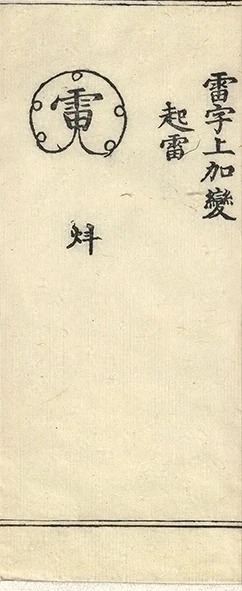 雷字上加變
起雷
雷
炓